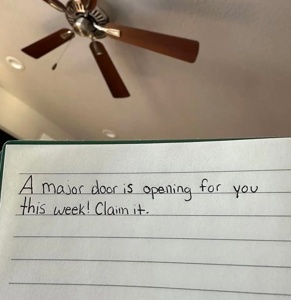 A major door is opening for you
this week! Claim it.